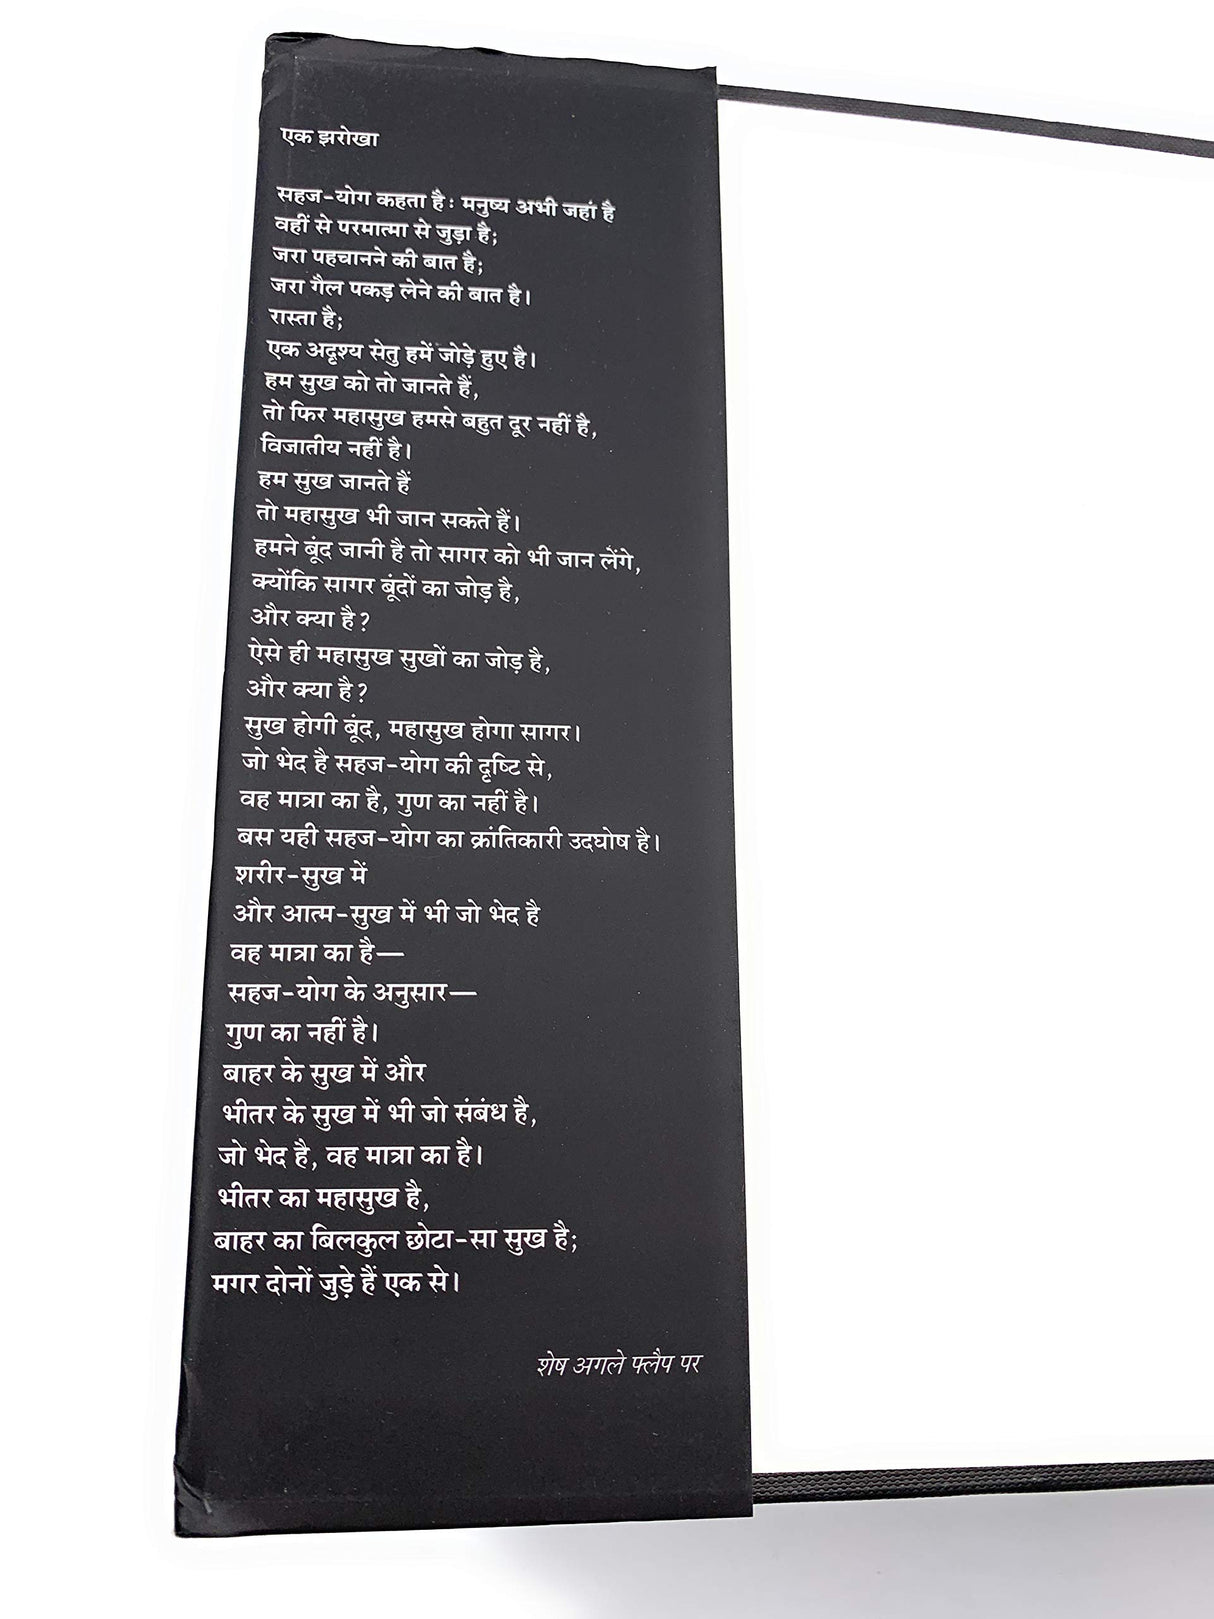 एक झरोखा
सहज-योग कहता है: मनुष्य अभी जहां है
वहीं से परमात्मा से जुड़ा है;
जरा पहचानने की बात है;
जरा गैल पकड़ लेने की बात है।
रास्ता है;
एक अदृश्य सेतु हमें जोड़े हुए है।
हम सुख को तो जानते हैं,
तो फिर महासुख हमसे बहुत दूर नहीं है,
विजातीय नहीं है।
हम सुख जानते हैं
तो महासुख भी जान सकते हैं।
हमने बूंद जानी है तो सागर को भी जान लेंगे,
क्योंकि सागर बूंदों का जोड़ है,
और क्या है?
ऐसे ही महासुख सुखों का जोड़ है,
और क्या है?
सुख होगी बूंद, महासुख होगा सागर।
जो भेद है सहज-योग की दृष्टि से,
वह मात्रा का है, गुण का नहीं है।
बस यही सहज-योग का क्रांतिकारी उदघोष है।
शरीर-सुख में
और आत्म-सुख में भी जो भेद है
वह मात्रा का है—
सहज-योग के अनुसार—
गुण का नहीं है।
बाहर के सुख में और
भीतर के सुख में भी जो संबंध है,
जो भेद है, वह मात्रा का है।
भीतर का महासुख है,
बाहर का बिलकुल छोटा-सा सुख है;
मगर दोनों जुड़े हैं एक से।
शेष अगले फ्लैप पर